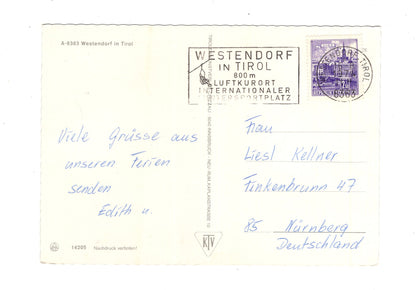 A-6363 Westendorf in Tirol
WESTENDORF
IN TIROL
800 m
LUFTKURORT
INTERNATIONALER
WINTERSPORTPLATZ
Viele Grüsse aus
unseren Ferien
senden
Edith u.
Frau
Liesl Kellner
Finkenbrunn 47
85 Nürnberg
Deutschland
14205 Nachdruck verboten!
KTV